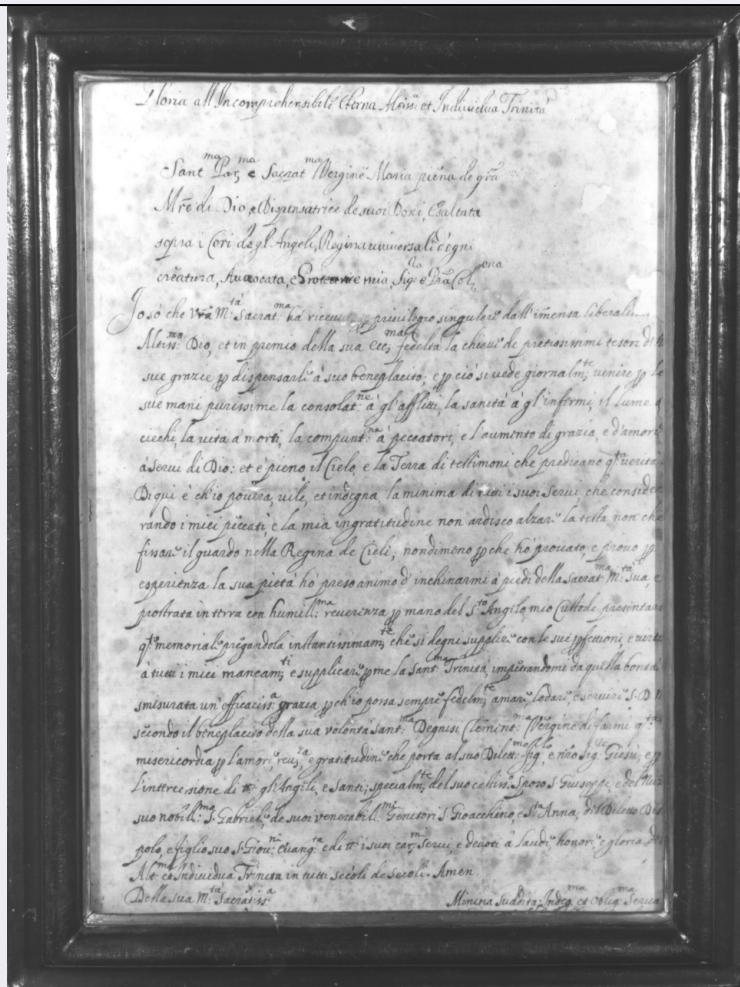 Gloria all'Incomprehensibile Eterna Altiss: et Individua Trinità
Sant^ma Par^ma e Sacrat^ma Vergine Maria piena de grã
Mrẽ di Dio, e Dispensatrice de suoi Doni, Esaltata
sopra i Cori de gl'Angeli, Regina universale d'ogni
creatura, Avvocata, e mia Sig^ra e Prã Col^ma
Io sò che Vrã M^tà Sacrat^ma ha ricevuto p privilegio singulare dall'immensa liberalità
Altiss^mo Dio, et in premio della sua fedeltà la chiave de pretiosissimi tesori di
sue grazie p dispensarli à suo beneplacito; e p ciò si vede giornalm^te venire p le
sue mani purissime la consolat^ne à gl'afflitti, la sanità à gl'infermi, il lume à
ciechi, la vita à morti, la compunt^ne à peccatori, e l'aumento di grazia, e d'amore
à servi di Dio: et è pieno il Cielo, e la Terra di testimoni che predicano q^ta verità
Di qui è ch'io povera, vile, et indegna, la minima di tutti i suoi servi, che conside=
rando i miei peccati, e la mia ingratitudine non ardisco alzare la testa non che
fissare il guardo nella Regina de Cieli, nondimeno p che hò provato, e provo p
esperienza la sua pietà hò preso animo d'inchinarmi à piedi della sacrat^ma M^tà sua, e
prostrata in terra con humill^ma reverenza p mano del S^to Angelo mio Custode presentare
q^to memoriale pregandola instantissimam^te che si degni supplire con le sue pfettioni, e virtù
à tutti i miei mancam^ti e supplicare p me la Sant^ma Trinità, impetrandomi da quella bontà
smisurata un'efficaciss^a grazia p ch'io possa sempre fedelm^te amare, lodare, e servire S. D. M
secondo il beneplacito della sua volontà sant^ma Degnisi Clement^ma Vergine di farmi q^ta
misericordia p l'amore, e gratitudine che porta al suo Dilett^mo figlo, e nrõ Sig. Giesù; e p
l'intercessione di tt: gl'Angeli, e santi; specialm^te del suo castiss: Sposo S Giuseppe, e del
suo nobil^ma S. Gabriele, de suoi venerabill^mi Genitori S Gioacchino, e S^ta Anna, del Diletto Disce
polo, e figlio suo S Giov^ni Evang^ta e di tt i suoi car^mi servi, e devoti à laude, honore, e gloria
Alt^ma et Individua Trinità in tutti secoli de secoli. Amen.
Della sua M^tà Sacratiss^a Minima suddita, Indeg^ma et Oblig^ma Serva